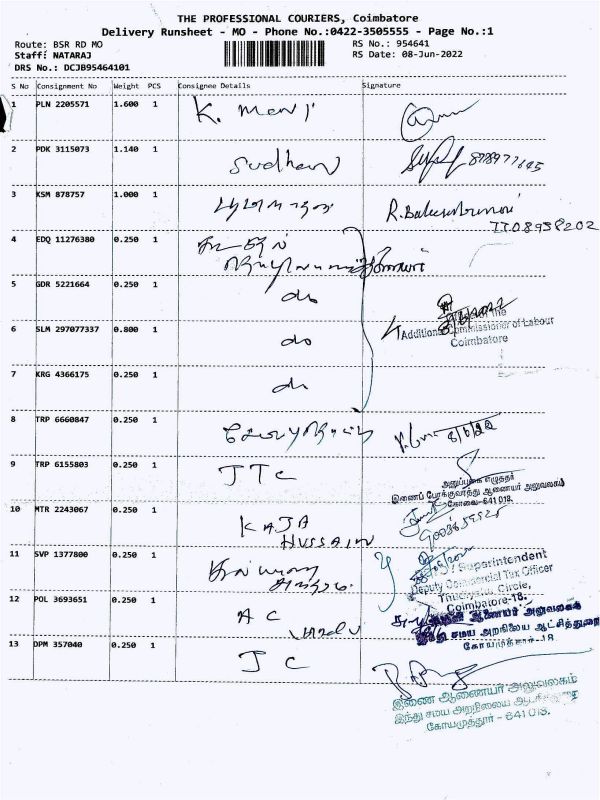 THE PROFESSIONAL COURIERS, Coimbatore
Delivery Runsheet - MO - Phone No.:0422-3505555 - Page No.:1
Route: BSR RD MO RS No.: 954641
Staff: NATARAJ RS Date: 08-Jun-2022
DRS No.: DCJB95464101
S No Consignment No Weight PCS Consignee Details Signature
1 PLN 2205571 1.600 1 K. Mani
2 PDK 3115073 1.140 1 Sudhan
3 KSM 878757 1.000 1
R. Balasubramani
7708958202
4 EDQ 11276380 0.250 1
5 GDR 5221664 0.250 1 do
Additional Commissioner of Labour
Coimbatore
6 SLM 297077337 0.800 1 do
7 KRG 4366175 0.250 1 do
8 TRP 6660847 0.250 1
8/6/22
9 TRP 6155803 0.250 1 JTC
அனுப்புகை எழுத்தர்
இணைப் போக்குவரத்து ஆணையர் அலுவலகம்
கோவை-641 018.
10 MTR 2243067 0.250 1 KAJA
HUSSAIN
11 SVP 1377800 0.250 1
Superintendent
Deputy Commercial Tax Officer
Circle,
Coimbatore-18.
12 POL 3693651 0.250 1 AC
ஆணையர் அலுவலகம்
இந்து சமய அறநிலைய ஆட்சித்துறை
கோயமுத்தூர்-18
13 DPM 357040 0.250 1 JC
இணை ஆணையர் அலுவலகம்
இந்து சமய அறநிலைய ஆட்சித்துறை
கோயமுத்தூர் - 641 018.